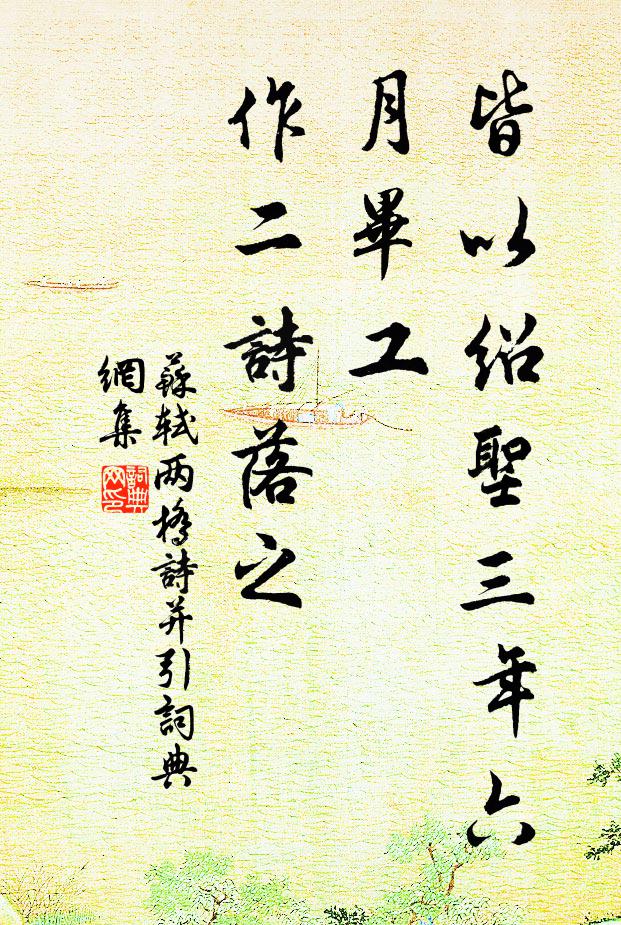 皆以紹聖三年六
月畢工
作二詩落之
蘇軾两橋詩并引詞典
網集
詞典
网印